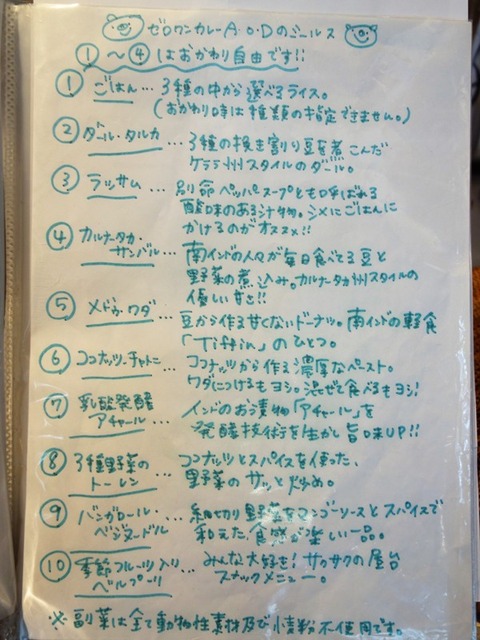 ゼロワンカレーA.O.Dのミールス
①〜④はおかわり自由です!!
① ごはん… 3種の中から選べるライス。
(おかわり時は種類の指定できません。)
② ダール・タルカ … 3種の挽き割り豆を煮こんだ
ケララ州スタイルのダール。
③ ラッサム … 別命ペッパースープとも呼ばれる
酸味のある汁物。シメにごはんに
かけるのがオススメ!!
④ カルナータカ・
サンバル … 南インドの人々が毎日食べてる豆と
野菜の煮込み。カルナータカ州スタイルの
優しい甘さ!!
⑤ メドゥ・ワダ … 豆から作る甘くないドーナツ。南インドの軽食
「Tiffin」のひとつ。
⑥ ココナッツ・チャトニー … ココナッツから作る濃厚なペースト。
ワダにつけるもヨシ。混ぜて食べるもヨシ!
⑦ 乳酸発酵
アチャール … インドのお漬物「アチャール」を
発酵技術を生かし旨味UP!!
⑧ 3種野菜の
トーレン … ココナッツとスパイスを使った、
野菜のサッと炒め。
⑨ バンガロール・
ベジヌードル … 細切り野菜をマンゴーソースとスパイスで
和えた、食感が楽しい一品。
⑩ 季節フルーツ入り
ベルプーリ … みんな大好き!サクサクの屋台
スナックメニュー。
※副菜は全て動物性素材及び小麦粉不使用です。